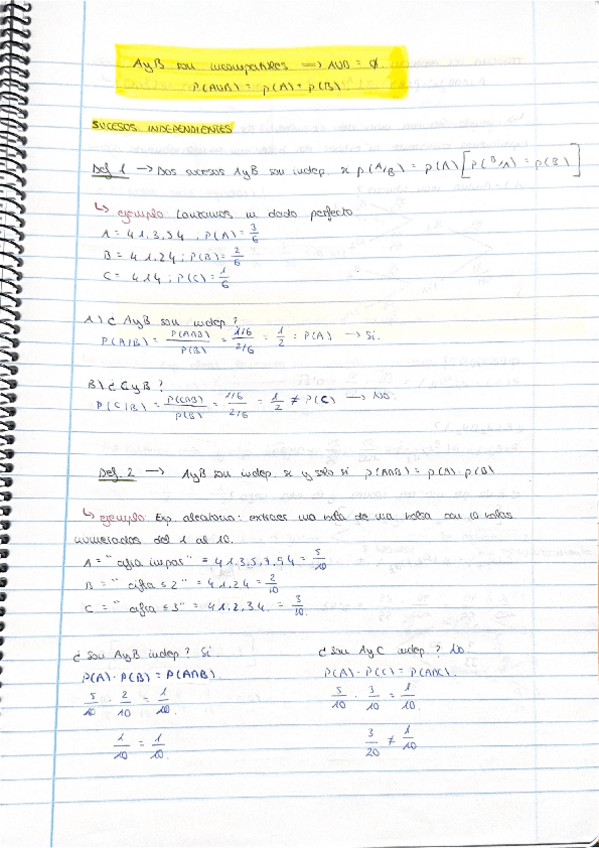 A y B son incompatibles => A∪B = Ø.
P(A∪B) = P(A) + P(B).
SUCESOS INDEPENDIENTES
Def 1 → Dos sucesos A y B son indep. si P(A/B) = P(A) [P(B/A) = P(B)]
↳ ejemplo Lanzamos un dado perfecto
A = {1,3,5} , P(A) = 3/6
B = {1,2} ; P(B) = 2/6
C = {1} ; P(C) = 1/6
A) ¿ A y B son indep ?
P(A|B) = P(A∩B)/P(B) = 1/6 / 2/6 = 1/2 = P(A) → Si.
B) ¿ C y B ?
P(C|B) = P(C∩B)/P(B) = 1/6 / 2/6 = 1/2 ≠ P(C) → No.
Def. 2 → A y B son indep. si y solo si P(A∩B) = P(A) · P(B)
↳ ejemplo Exp. aleatorio: extraes una bola de una bolsa con 10 bolas
numeradas del 1 al 10.
A = "cifra impar" = {1,3,5,7,9} = 5/10
B = "cifra ≤ 2" = {1,2} = 2/10
C = "cifra ≤ 3" = {1,2,3}. = 3/10.
¿ Son A y B indep ? Si
P(A) · P(B) = P(A∩B).
5/10 · 2/10 = 1/10.
1/10 = 1/10.
¿ Son A y C indep ? No.
P(A) · P(C) = P(A∩C).
5/10 · 3/10 = 1/10
3/20 ≠ 1/10